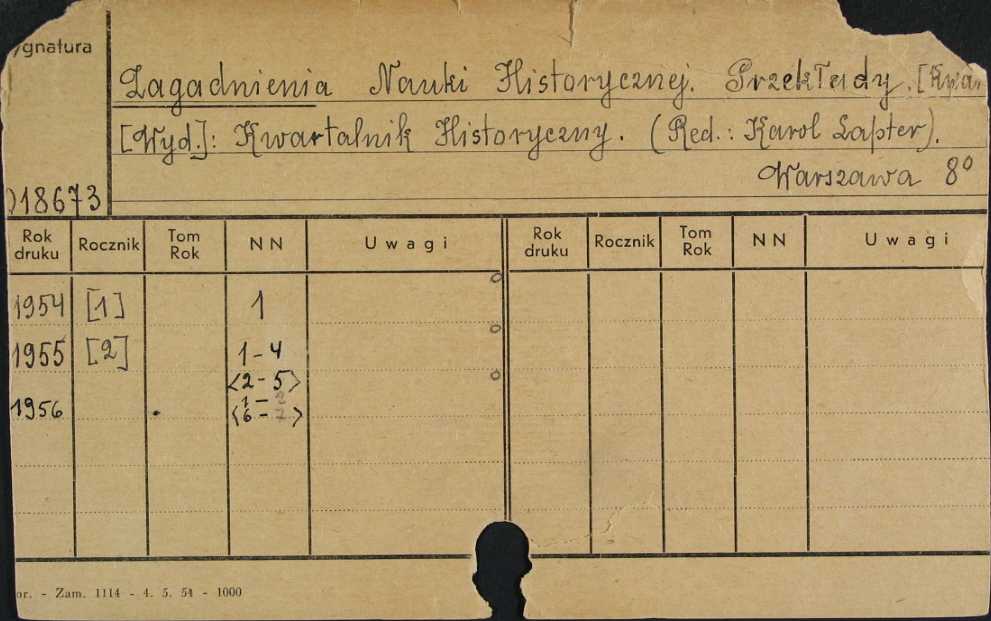 ygnatura
Zagadnienia Nauki Historycznej. Przekłady. [Kwa
[Wyd.]: Kwartalnik Historyczny. (Red.: Karol Lapter).
Warszawa 8°
018673
Rok druku Rocznik Tom Rok NN Uwagi Rok druku Rocznik Tom Rok NN Uwagi
1954 [1] 1
1955 [2] 1-4
<2-5>
1956 1-2
<6-7>
or. - Zam. 1114 - 4. 5. 54 - 1000